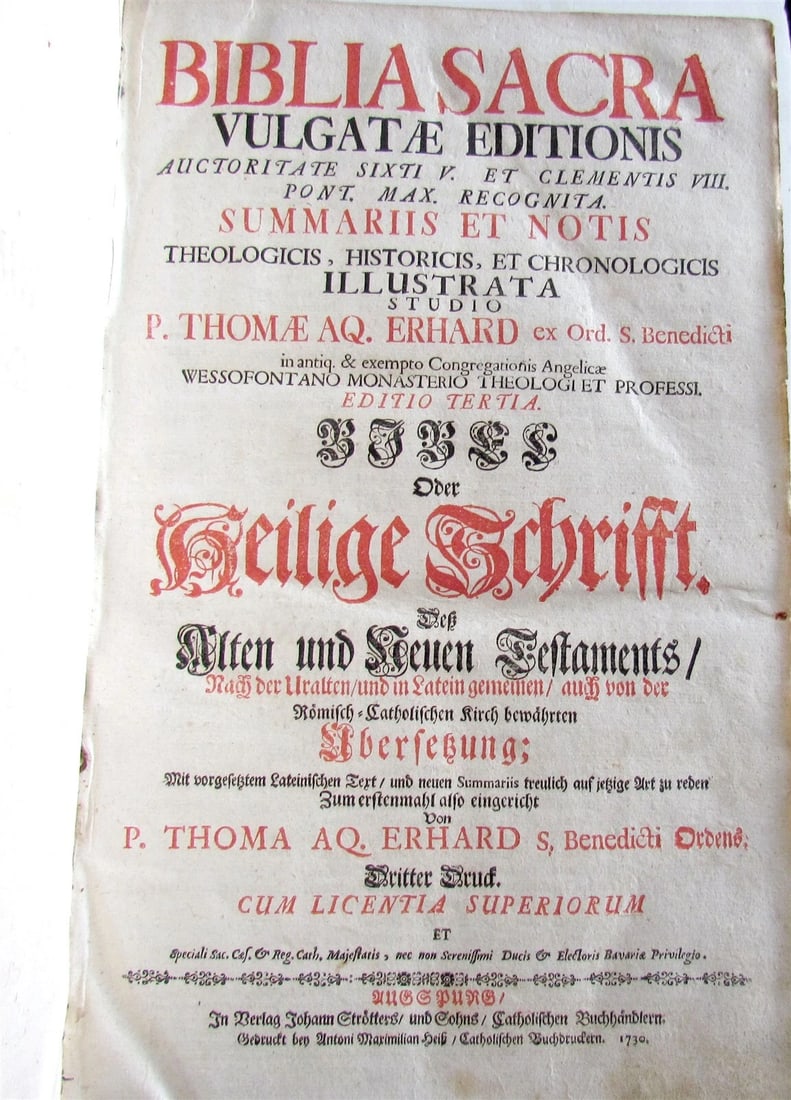 BIBLIA SACRA
VULGATÆ EDITIONIS
AUCTORITATE SIXTI V. ET CLEMENTIS VIII.
PONT. MAX. RECOGNITA.
SUMMARIIS ET NOTIS
THEOLOGICIS, HISTORICIS, ET CHRONOLOGICIS
ILLUSTRATA
STUDIO
P. THOMÆ AQ. ERHARD ex Ord. S. Benedicti
in antiq. & exempto Congregationis Angelicæ
WESSOFONTANO MONASTERIO THEOLOGI ET PROFESSI.
EDITIO TERTIA.
BIBEL
Oder
Heilige Schrifft.
Deß
Alten und Neuen Testaments/
Nach der Uralten/und in Latein gemeinen/ auch von der
Römisch-Catholischen Kirch bewährten
Ubersetzung;
Mit vorgesetztem Lateinischen Text/ und neuen Summariis treulich auf jetzige Art zu reden
Zum erstenmahl also eingericht
Von
P. THOMA AQ. ERHARD S, Benedicti Ordens.
Dritter Druck.
CUM LICENTIA SUPERIORUM
ET
Speciali Sac. Cæs. & Reg. Cath. Majestatis, nec non Serenissimi Ducis & Electoris Bavariæ Privilegio.
AUGSPURG/
In Verlag Johann Strötters/ und Sohns/ Catholischen Buchhändlern.
Gedruckt bey Antoni Maximilian Heiß/ Catholischen Buchdruckern. 1730.